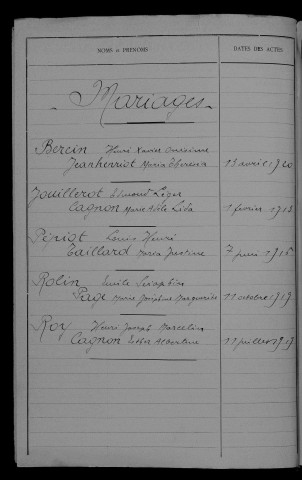 NOMS ET PRÉNOMS DATES DES ACTES
Mariages
Bercin Henri Xavier
Jeanherriot Maria Theresia 13 avril 1920
Jouillerot Edmond Léger
Cagnon Marie Adèle Lida 1 février 1913
Pépiot Louis Henri
Taillard Maria Justine 7 juin 1916
Rolin Emile Séraphin
Page Marie Joséphine Marguerite 11 octobre 1917
Roy Henri Joseph Marcelin
Cagnon Esther Albertine 11 juillet 1917